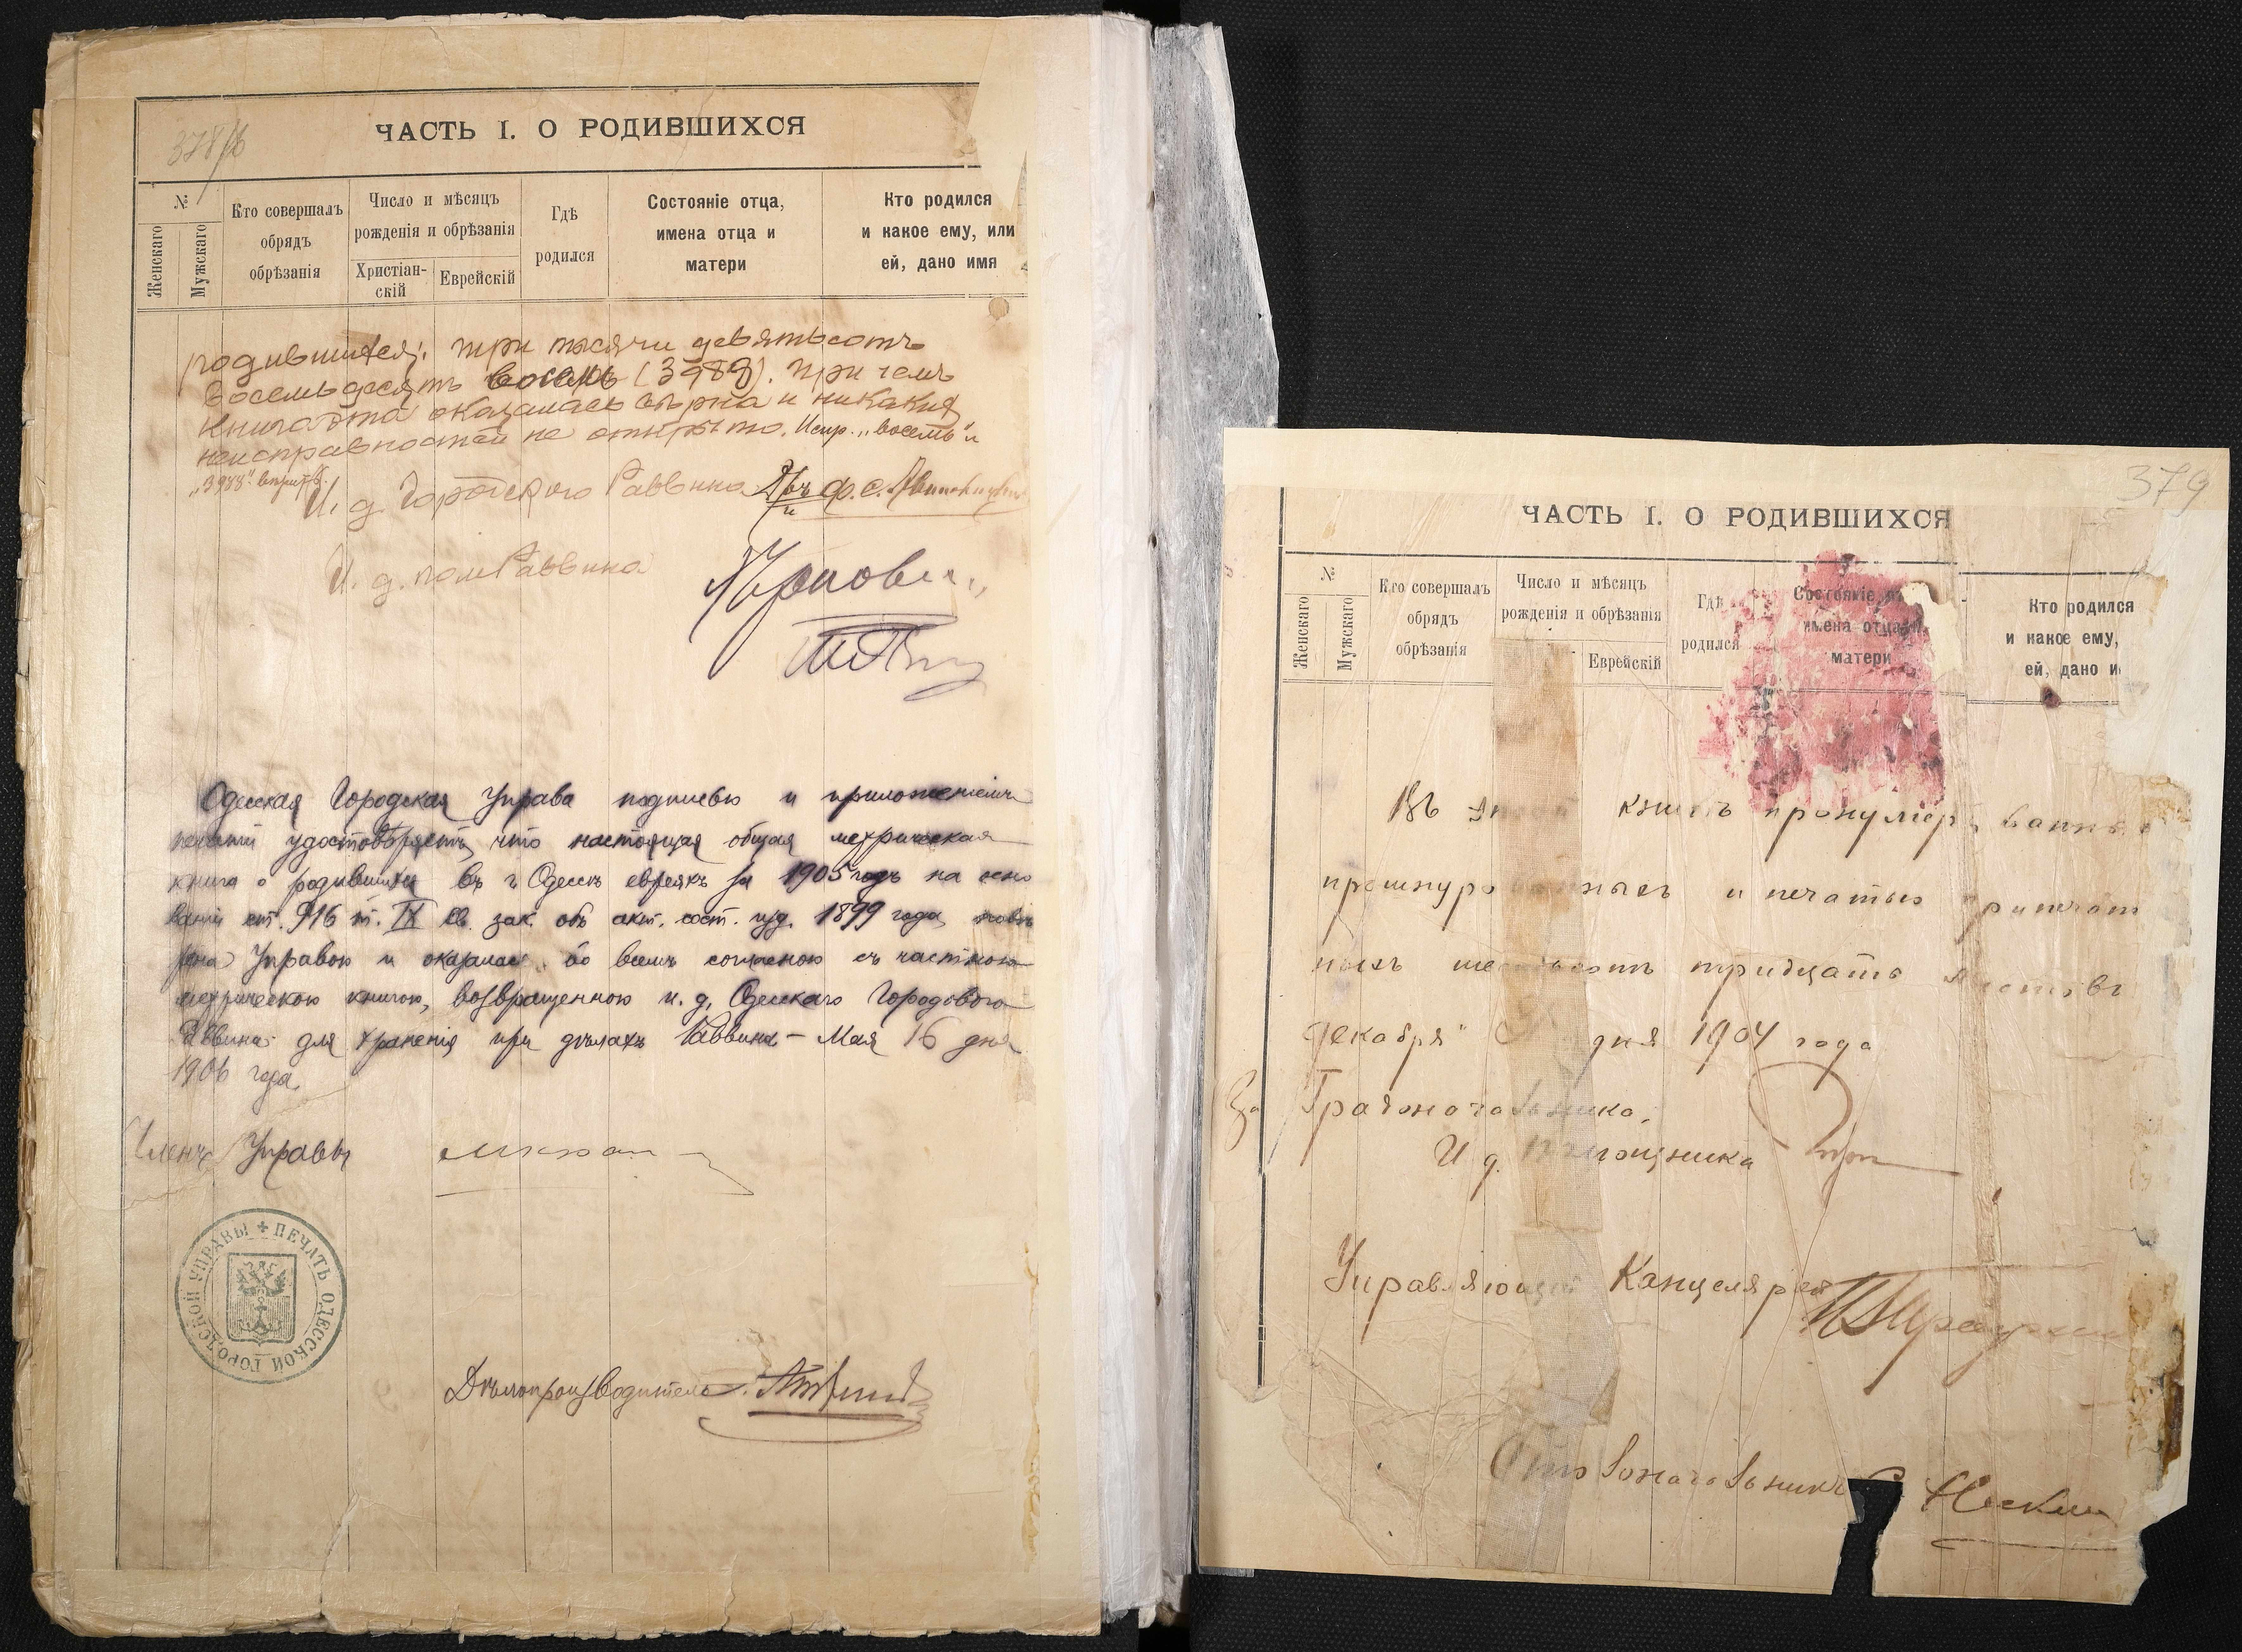 378/б
ЧАСТЬ I. О РОДИВШИХСЯ
№
Женскаго
Мужскаго
Кто совершалъ
обрядъ
обрѣзанія
Число и мѣсяцъ
рожденія и обрѣзанія
Христіан-
скій
Еврейскій
Гдѣ
родился
Состояніе отца,
имена отца и
матери
Кто родился
и какое ему, или
ей, дано имя
родившихся: три тысячи девятьсотъ
восемьдесятъ восемь (3988). При чемъ
книга эта оказалась вѣрна и никакихъ
неисправностей не открыто. Испр. „восемь" и
„3988" вѣрить.
И. д. Городского Раввина
И. д. пом Раввина
Одесская Городская Управа подписью и приложеніемъ
печати удостовѣряетъ, что настоящая общая метрическая
книга о родившихся въ г. Одессѣ евреяхъ за 1905 годъ на осно
ваніи ст. 916 т. IX св. зак. объ акт. сост. изд. 1899 года, повѣ
рена Управою и оказалась во всемъ согласною съ частною
метрическою книгою, возвращенною и. д. Одесскаго Городового
Раввина для храненія при дѣлахъ Раввина - Мая 16 дня
1906 года.
Членъ Управы
ПЕЧАТЬ ОДЕССКОЙ ГОРОДСКОЙ УПРАВЫ
Дѣлопроизводитель
379
ЧАСТЬ I. О РОДИВШИХСЯ
№
Женскаго
Мужскаго
Кто совершалъ
обрядъ
обрѣзанія
Число и мѣсяцъ
рожденія и обрѣзанія
Еврейскій
Гдѣ
родился
Состояніе
имена отца
матери
Кто родился
и какое ему,
ей, дано и
Въ книгѣ пронумерованныхъ
прошнурованныхъ и печатью припечатан
ныхъ шестьсотъ тридцать листовъ
Декабря дня 1904 года
За Градоначальника,
И д. Помощника
Управляющій Канцеляріей
Столоначальникъ